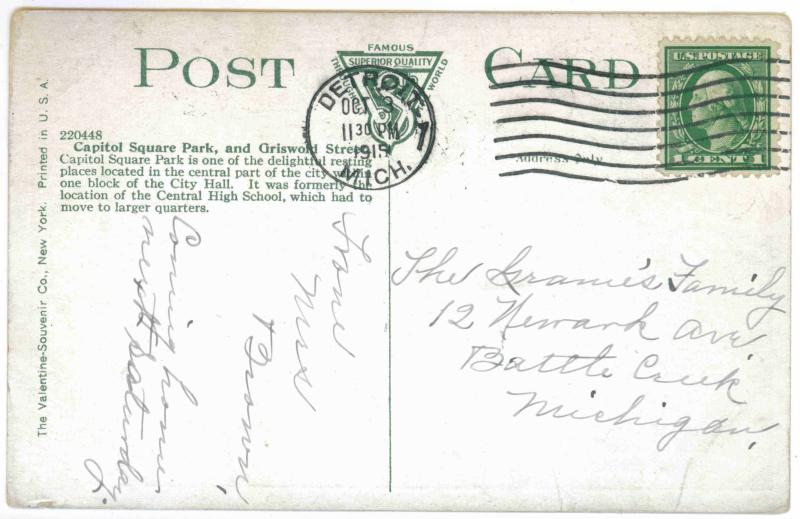 POST CARD
FAMOUS
THROUGHOUT
SUPERIOR QUALITY
WORLD
DETROIT
OCT
11 30 PM
1915
MICH.
1
U.S. POSTAGE
1 CENT 1
Address Only
220448
Capitol Square Park, and Griswold Street,
Capitol Square Park is one of the delightful resting
places located in the central part of the city within
one block of the City Hall. It was formerly the
location of the Central High School, which had to
move to larger quarters.
The Valentine-Souvenir Co., New York. Printed in U. S. A.
Coming home
next Saturday
Mrs
Brown
The Family
12 Newark Ave
Battle Creek
Michigan.